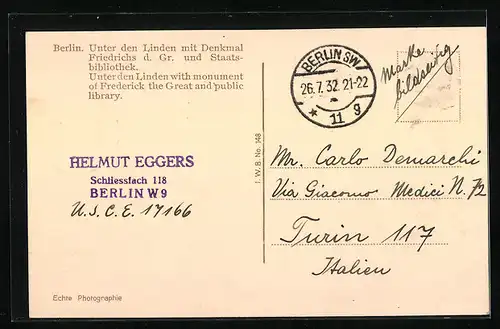 Berlin. Unter den Linden mit Denkmal
Friedrichs d. Gr. und Staats-
bibliothek.
Unter den Linden with monument
of Frederick the Great and public
library.
BERLIN SW
26.7.32.21-22
* 11 g
Marke
bildseitig
HELMUT EGGERS
Schliessfach 118
BERLIN W 9
U.S.C.E. 17166
I. W. B. No. 148
Mr. Carlo Demarchi
Via Giacomo Medici N. 72
Turin 117
Italien
Echte Photographie